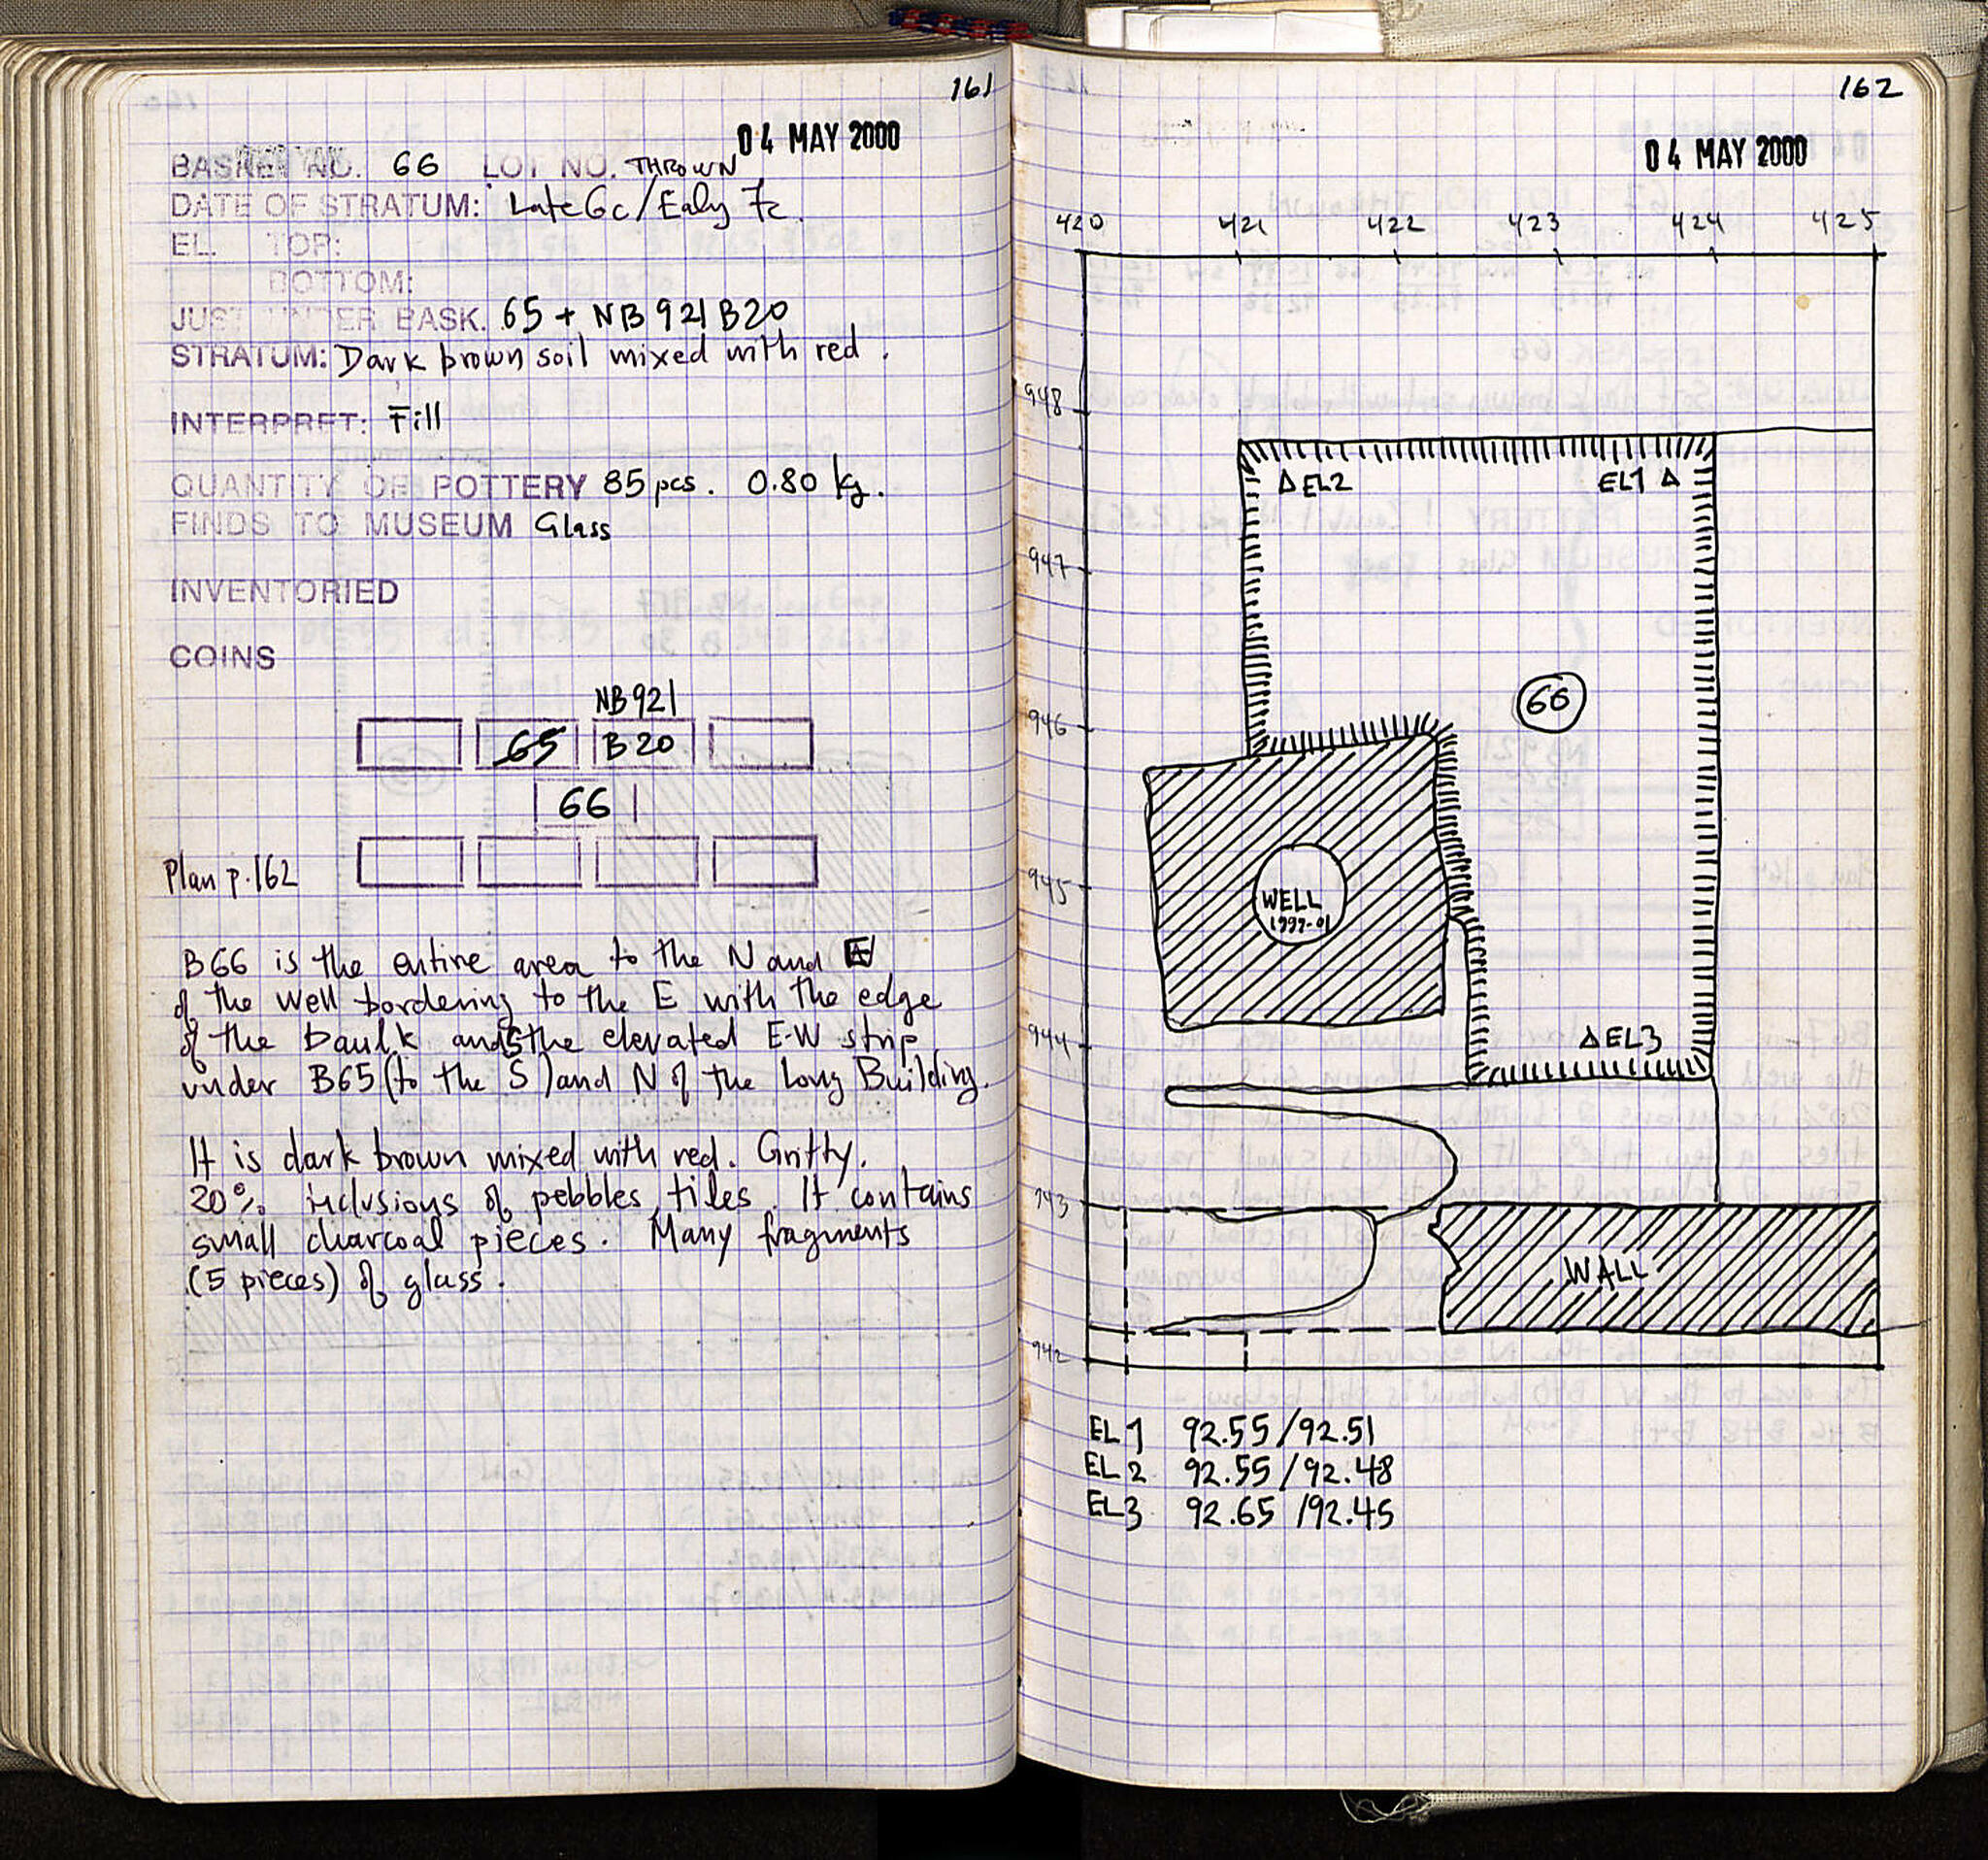 161
04 MAY 2000
BASKET NO. 66 LOT NO. THROWN
DATE OF STRATUM: Late 6c/Ealy 7c.
EL. TOP:
BOTTOM:
JUST UNDER BASK. 65 + NB 921 B20
STRATUM: Dark brown soil mixed with red.
INTERPRET: Fill
QUANTITY OF POTTERY 85 pcs. 0.80 kg.
FINDS TO MUSEUM Glass
INVENTORIED
COINS
NB 921
65 B 20
66
Plan p.162
B66 is the entire area to the N and E
of the well bordering to the E with the edge
of the baulk and S the elevated E-W strip
under B65 (to the S) and N of the Long Building.
It is dark brown mixed with red. Gritty.
20% inclusions of pebbles, tiles. It contains
small charcoal pieces. Many fragments
(5 pieces) of glass.
162
04 MAY 2000
420 421 422 423 424 425
948
ΔEL2 EL1 Δ
947
66
946
945
WELL
1997-01
944
ΔEL3
943
WALL
942
EL1 92.55/92.51
EL2 92.55/92.48
EL3 92.65/92.45